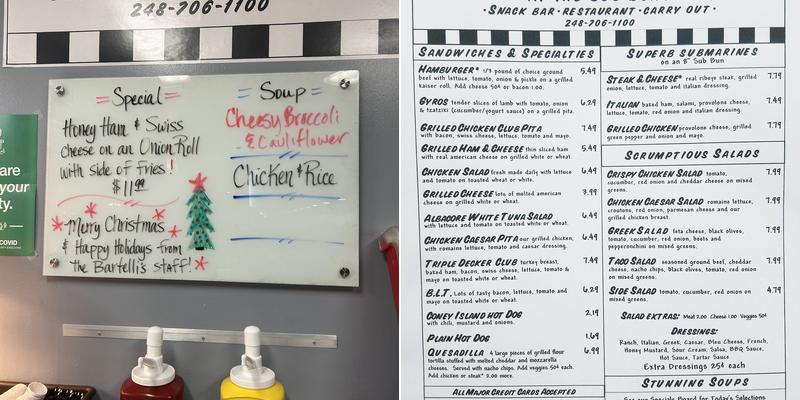 248-706-1100
= Special =
Honey Ham & Swiss
cheese on an Onion Roll
with side of Fries!
$11.99
Merry Christmas
& Happy Holidays from
the Bartelli's staff!
= Soup =
Cheesy Broccoli
& Cauliflower
Chicken & Rice
are
your
ty.
COVID
· SNACK BAR · RESTAURANT · CARRY OUT ·
248-706-1100
SANDWICHES & SPECIALTIES
HAMBURGER* 1/3 pound of choice ground 5.49
beef with lettuce, tomato, onion & pickle on a grilled
kaiser roll. Add cheese 50¢ or bacon 1.00.
GYROS tender slices of lamb with tomato, onion 6.29
& tzatziki (cucumber/yogurt sauce) on a grilled pita.
GRILLED CHICKEN CLUB PITA 7.49
with bacon, swiss cheese, lettuce, tomato and mayo.
GRILLED HAM & CHEESE thin sliced ham 5.49
with real american cheese on grilled white or wheat.
CHICKEN SALAD fresh made daily with lettuce 6.49
and tomato on toasted white or wheat.
GRILLED CHEESE lots of melted american 3.99
cheese on grilled white or wheat.
ALBACORE WHITE TUNA SALAD 6.49
with lettuce and tomato on toasted white or wheat.
CHICKEN CAESAR PITA our grilled chicken, 6.49
with romaine lettuce, tomato and caesar dressing.
TRIPLE DECKER CLUB turkey breast, 7.49
baked ham, bacon, swiss cheese, lettuce, tomato &
mayo on toasted white or wheat.
B.L.T. Lots of tasty bacon, lettuce, tomato and 6.29
mayo on toasted white or wheat.
CONEY ISLAND HOT DOG 2.19
with chili, mustard and onions.
PLAIN HOT DOG 1.69
QUESADILLA 4 large pieces of grilled flour 6.99
tortilla stuffed with melted cheddar and mozzarella
cheeses. Served with nacho chips. Add veggies 50¢ each.
Add chicken or steak* 2.00 more.
ALL MAJOR CREDIT CARDS ACCEPTED
SUPERB SUBMARINES
on an 8" Sub Bun
STEAK & CHEESE* real ribeye steak, grilled 7.79
onion, lettuce, tomato and italian dressing.
ITALIAN baked ham, salami, provolone cheese, 7.49
lettuce, tomato, red onion and italian dressing.
GRILLED CHICKEN provolone cheese, grilled 7.79
green pepper and onion and mayo.
SCRUMPTIOUS SALADS
CRISPY CHICKEN SALAD tomato, 7.99
cucumber, red onion and cheddar cheese on mixed
greens.
CHICKEN CAESAR SALAD romaine lettuce, 7.99
croutons, red onion, parmesan cheese and our
grilled chicken breast.
GREEK SALAD feta cheese, black olives, 7.99
tomato, cucumber, red onion, beets and
pepperoncini on mixed greens.
TACO SALAD seasoned ground beef, cheddar 7.99
cheese, nacho chips, black olives, tomato, red onion
on mixed greens.
SIDE SALAD tomato, cucumber, red onion on 4.79
mixed greens.
SALAD EXTRAS: Meat 2.00 Cheese 1.00 Veggies 50¢
DRESSINGS:
Ranch, Italian, Greek, Caesar, Bleu Cheese, French,
Honey Mustard, Sour Cream, Salsa, BBQ Sauce,
Hot Sauce, Tartar Sauce
Extra Dressings 25¢ each
STUNNING SOUPS
See our Specials Board for Today's Selections